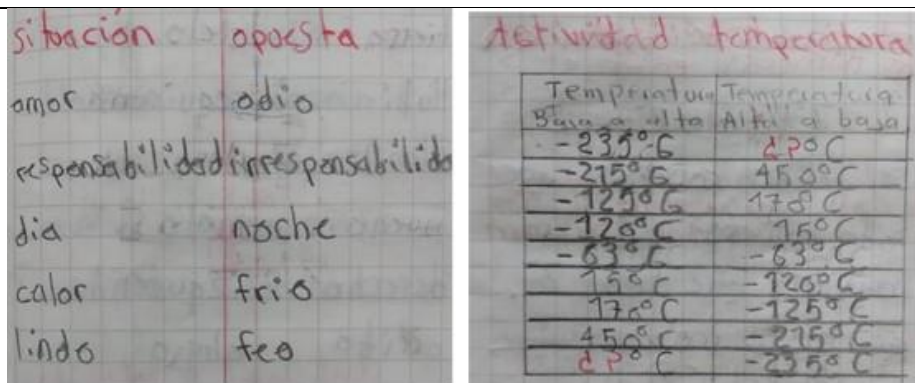 situación opuesta
amor odio
responsabilidad irresponsabilida
dia noche
calor frio
lindo feo
Actividad temperatura
Tempriatura Temperatura
Baja a alta Alta a baja
-235°C ¿?°C
-215°C 450°C
-125°C 170°C
-120°C 15°C
-63°C -63°C
15°C -120°C
170°C -125°C
450°C -215°C
¿?°C -235°C